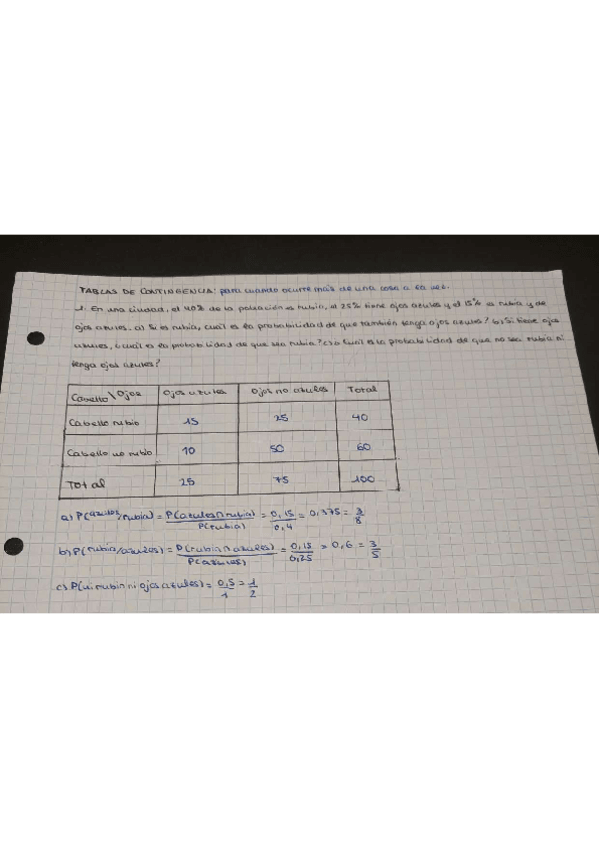 TABLAS DE CONTINGENCIA: para cuando ocurre más de una cosa a la vez.
1. En una ciudad, el 40% de la población es rubia, el 25% tiene ojos azules y el 15% es rubia y de
ojos azules. a) Si es rubia, cuál es la probabilidad de que también tenga ojos azules? b) Si tiene ojos
azules, ¿cuál es la probabilidad de que sea rubia? c) ¿Cuál es la probabilidad de que no sea rubia ni
tenga ojos azules?
Cabello \ Ojos Ojos azules Ojos no azules Total
Cabello rubio 15 25 40
Cabello no rubio 10 50 60
Total 25 75 100
a) P(azules/rubia) = P(azules∩rubia)/P(rubia) = 0,15/0,4 = 0,375 = 3/8
b) P(rubia/azules) = P(rubia∩azules)/P(azules) = 0,15/0,25 = 0,6 = 3/5
c) P(ni rubia ni ojos azules) = 0,5/1 = 1/2